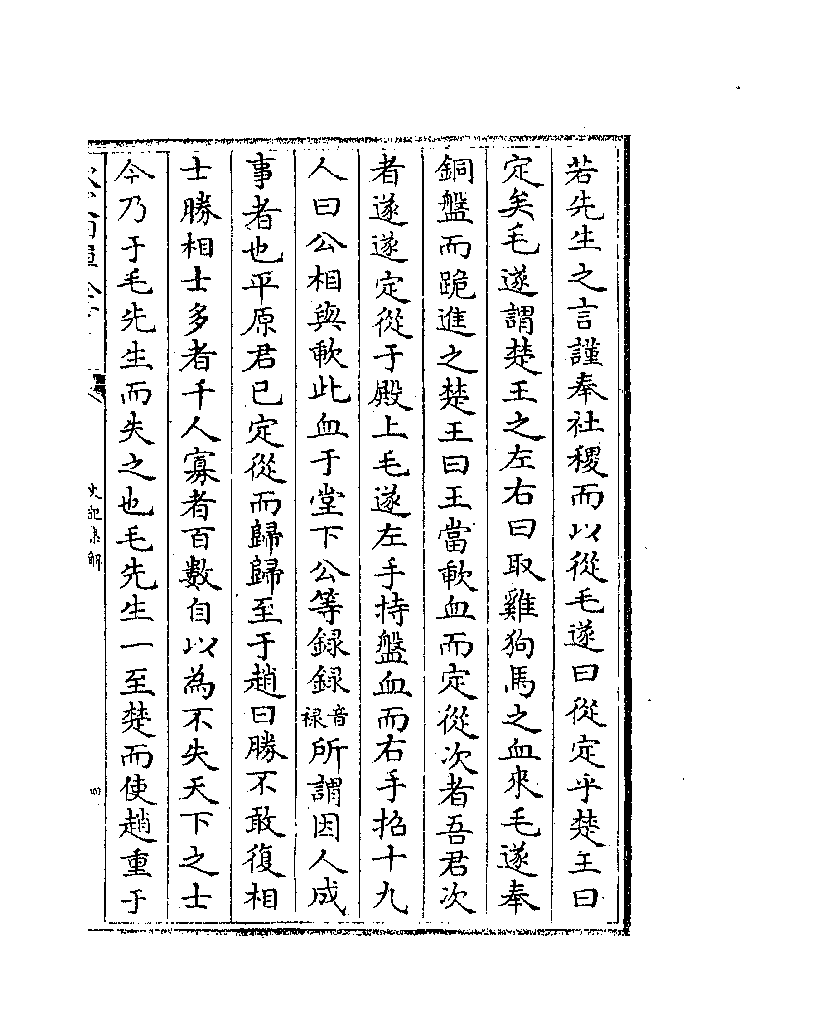 若先生之言謹奉社稷而以從毛遂曰從定乎楚王曰
定矣毛遂謂楚王之左右曰取雞狗馬之血來毛遂奉
銅盤而跪進之楚王曰王當歃血而定從次者吾君次
者遂遂定從于殿上毛遂左手持盤血而右手招十九
人曰公相與歃此血于堂下公等録録音禄所謂因人成
事者也平原君已定從而歸歸至于趙曰勝不敢復相
士勝相士多者千人寡者百數自以為不失天下之士
今乃于毛先生而失之也毛先生一至楚而使趙重于
史記集解